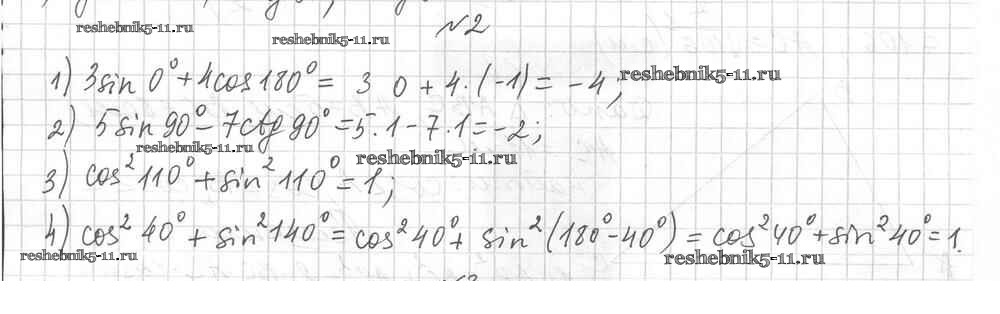 reshebnik5-11.ru
№2
reshebnik5-11.ru
1) 3sin 0° + 4cos 180° = 3 0 + 4·(-1) = -4;
reshebnik5-11.ru
2) 5sin 90° - 7ctg 90° = 5·1 - 7·1 = -2;
reshebnik5-11.ru
reshebnik5-11.ru
3) cos² 110° + sin² 110° = 1;
4) cos² 40° + sin² 140° = cos² 40° + sin² (180° - 40°) = cos² 40° + sin² 40° = 1.
reshebnik5-11.ru
reshebnik5-11.ru